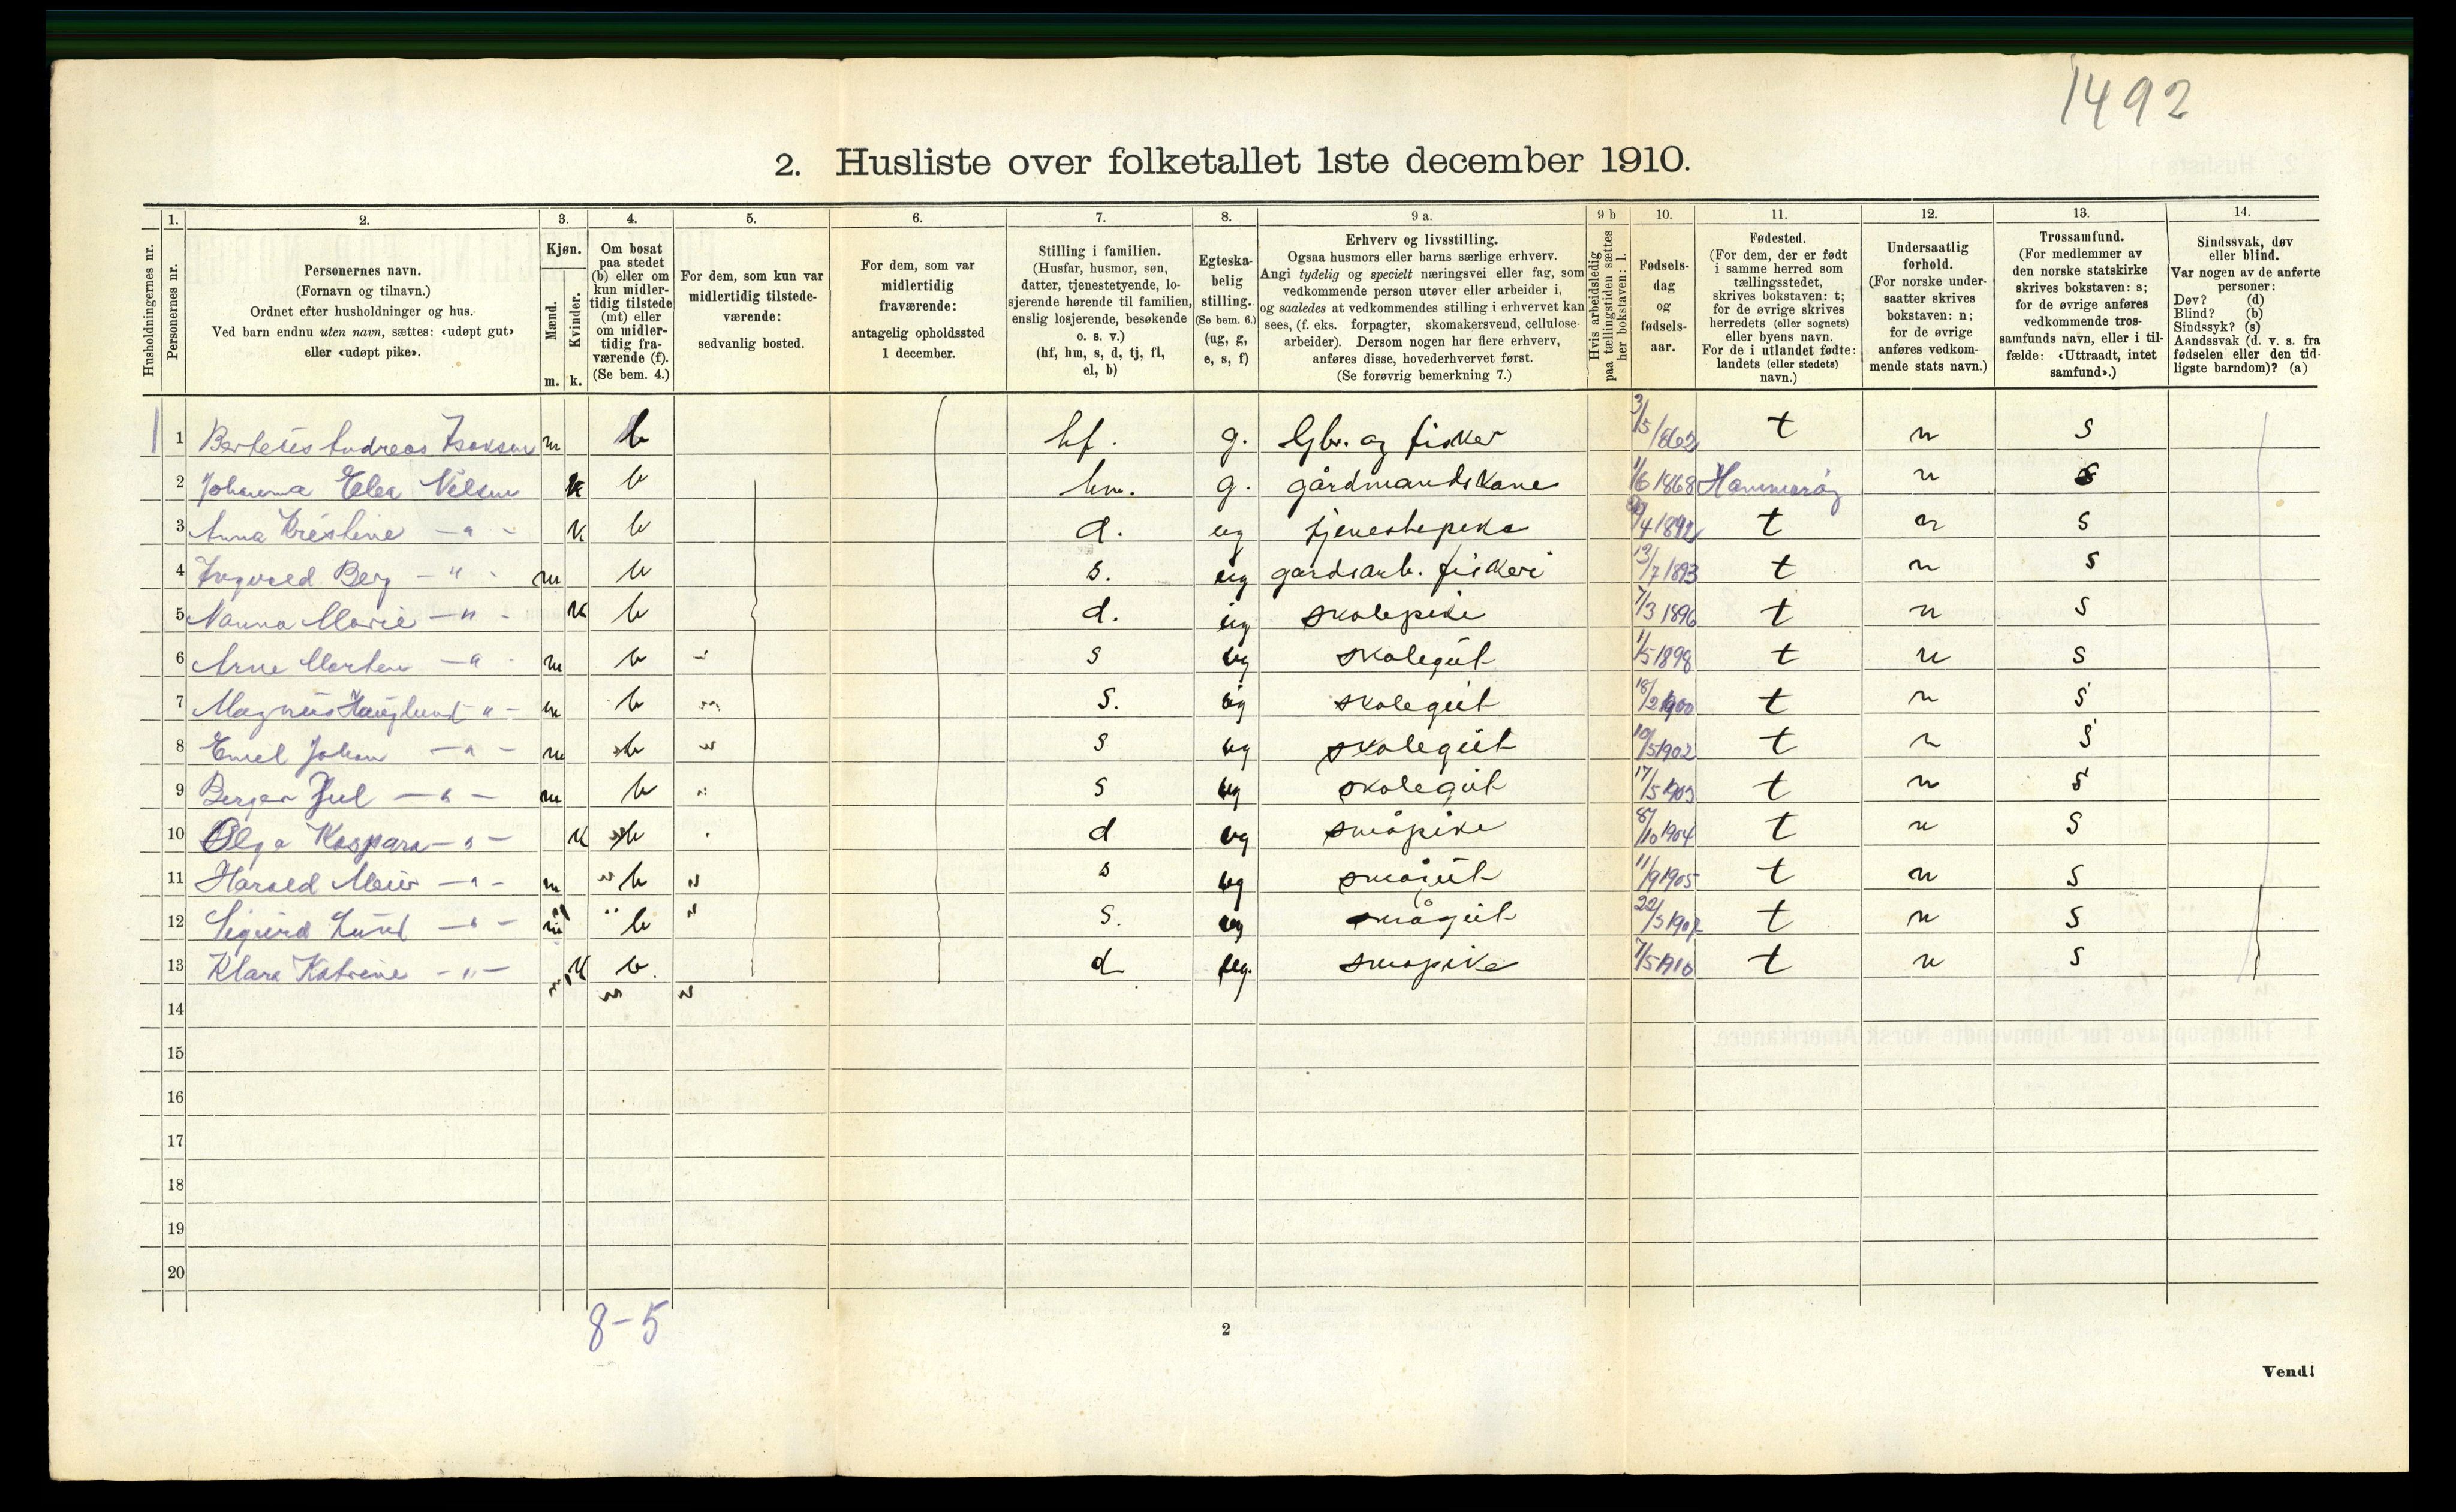 1492
2. Husliste over folketallet 1ste december 1910.
Husholdningernes nr.
1. Personernes nr.
2. Personernes navn.
(Fornavn og tilnavn.)
Ordnet efter husholdninger og hus.
Ved barn endnu uten navn, sættes: «udøpt gut»
eller «udøpt pike».
3. Kjøn.
Mænd. m.
Kvinder. k.
4. Om bosat
paa stedet
(b) eller om
kun midler-
tidig tilstede
(mt) eller
om midler-
tidig fra-
værende (f).
(Se bem. 4.)
5. For dem, som kun var
midlertidig tilstede-
værende:
sedvanlig bosted.
6. For dem, som var
midlertidig
fraværende:
antagelig opholdssted
1 december.
7. Stilling i familien.
(Husfar, husmor, søn,
datter, tjenestetyende, lo-
sjerende hørende til familien,
enslig losjerende, besøkende
o. s. v.)
(hf, hm, s, d, tj, fl,
el, b)
8. Egteska-
belig
stilling.
(Se bem. 6.)
(ug, g,
e, s, f)
9 a. Erhverv og livsstilling.
Ogsaa husmors eller barns særlige erhverv.
Angi tydelig og specielt næringsvei eller fag, som
vedkommende person utøver eller arbeider i,
og saaledes at vedkommendes stilling i erhvervet kan
sees, (f. eks. forpagter, skomakersvend, cellulose-
arbeider). Dersom nogen har flere erhverv,
anføres disse, hovederhvervet først.
(Se forøvrig bemerkning 7.)
9 b Hvis arbeidsledig
paa tællingstiden sættes
her bokstaven: l.
10. Fødsels-
dag
og
fødsels-
aar.
11. Fødested.
(For dem, der er født
i samme herred som
tællingsstedet,
skrives bokstaven: t;
for de øvrige skrives
herredets (eller sognets)
eller byens navn.
For de i utlandet fødte:
landets (eller stedets)
navn.)
12. Undersaatlig
forhold.
(For norske under-
saatter skrives
bokstaven: n;
for de øvrige
anføres vedkom-
mende stats navn.)
13. Trossamfund.
(For medlemmer av
den norske statskirke
skrives bokstaven: s;
for de øvrige anføres
vedkommende tros-
samfunds navn, eller i til-
fælde: «Uttraadt, intet
samfund».)
14. Sindssvak, døv
eller blind.
Var nogen av de anførte
personer:
Døv? (d)
Blind? (b)
Sindssyk? (s)
Aandssvak (d. v. s. fra
fødselen eller den tid-
ligste barndom)? (a)
1 1 Berteus Andreas Isaksen m b hf. g. Gbr. og fisker 3/5 1862 t n s
2 Johanna Elea Nilsen k b hm. g. gårdmandskone 1/6 1868 Hammerøy n s
3 Anna Kristine — " - k b d. ug tjenestepike 4 1892 t n s
4 Ingvald Berg — " - m b s. ug gårdsarb. fiskeri 13/7 1893 t n s
5 Nanna Marie — " - k b d. ug skolepike 7/3 1896 t n s
6 Arne Morten — " - m b s ug skolegut 1/5 1898 t n s
7 Magnus Hauglund " - m b s. ug skolegut 18/2 1900 t n s
8 Emel Johan — " - m b s ug skolegut 10/5 1902 t n s
9 Berger Jul — " - m b s ug skolegut 17/5 1903 t n s
10 Olga Kaspara — " - k b d ug småpike /10 1904 t n s
11 Harald Meier — " - m b s ug smågut 11/9 1905 t n s
12 Sigurd Lund — " - m b s. ug smågut 22/5 1907 t n s
13 Klara Katrine - " - k b. d ug. småpike 7/5 1910 t n s
14
15
16
17
18
19
20
8-5
2
Vend!